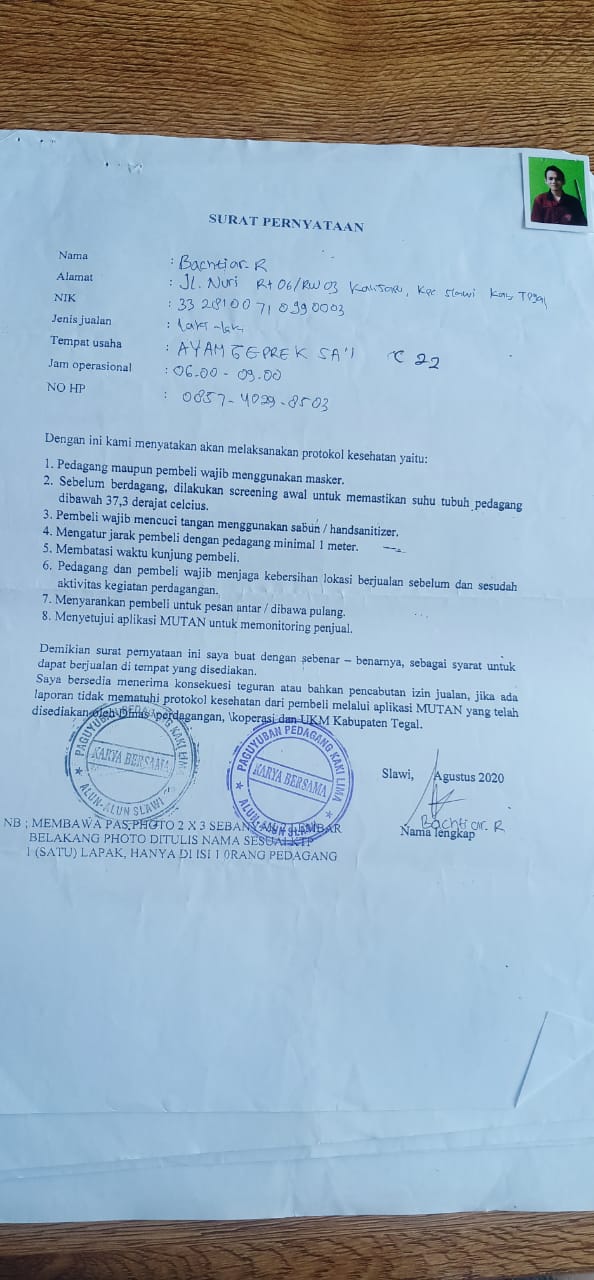 SURAT PERNYATAAN
Nama : Bachtiar. R
Alamat : Jl. Nuri Rt 06/RW 03 Kec Slawi Kab Tegal
NIK : 33 28100 71 0990003
Jenis jualan : Laki-laki
Tempat usaha : AYAM GEPREK SA'I C 22
Jam operasional : 06.00 - 09.00
NO HP : 0857-4029-8503
Dengan ini kami menyatakan akan melaksanakan protokol kesehatan yaitu:
1. Pedagang maupun pembeli wajib menggunakan masker.
2. Sebelum berdagang, dilakukan screening awal untuk memastikan suhu tubuh pedagang
dibawah 37,3 derajat celcius.
3. Pembeli wajib mencuci tangan menggunakan sabun / handsanitizer.
4. Mengatur jarak pembeli dengan pedagang minimal 1 meter.
5. Membatasi waktu kunjung pembeli.
6. Pedagang dan pembeli wajib menjaga kebersihan lokasi berjualan sebelum dan sesudah
aktivitas kegiatan perdagangan.
7. Menyarankan pembeli untuk pesan antar / dibawa pulang.
8. Menyetujui aplikasi MUTAN untuk memonitoring penjual.
Demikian surat pernyataan ini saya buat dengan sebenar – benarnya, sebagai syarat untuk
dapat berjualan di tempat yang disediakan.
Saya bersedia menerima konsekuesi teguran atau bahkan pencabutan izin jualan, jika ada
laporan tidak mematuhi protokol kesehatan dari pembeli melalui aplikasi MUTAN yang telah
disediakan oleh Dinas perdagangan, \koperasi dan UKM Kabupaten Tegal.
PAGUYUBAN PEDAGANG KAKI LIMA
KARYA BERSAMA
ALUN-ALUN SLAWI
PAGUYUBAN PEDAGANG KAKI LIMA
KARYA BERSAMA
ALUN-ALUN SLAWI
Slawi, Agustus 2020
Bachtiar. R
Nama lengkap
NB ; MEMBAWA PAS PHOTO 2 X 3 SEBANYAK LEMBAR
BELAKANG PHOTO DITULIS NAMA SESUAI KTP
1 (SATU) LAPAK, HANYA DI ISI 1 0RANG PEDAGANG